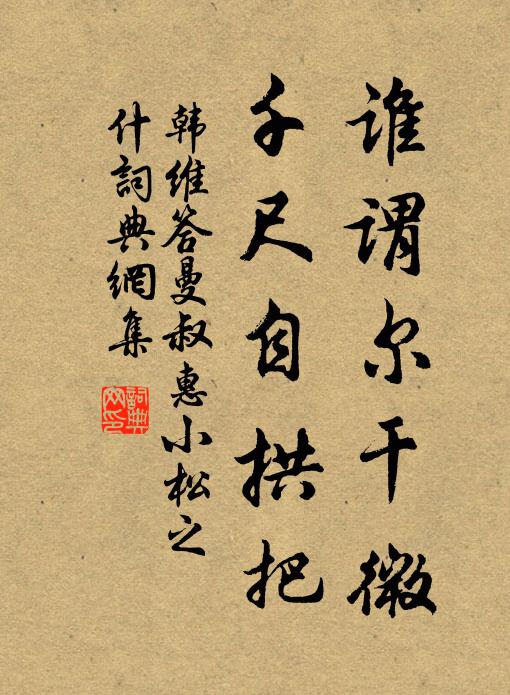 谁谓尔干微
千尺自拱把
韩维答曼叔惠小松之
什詞典網集
詞典网印